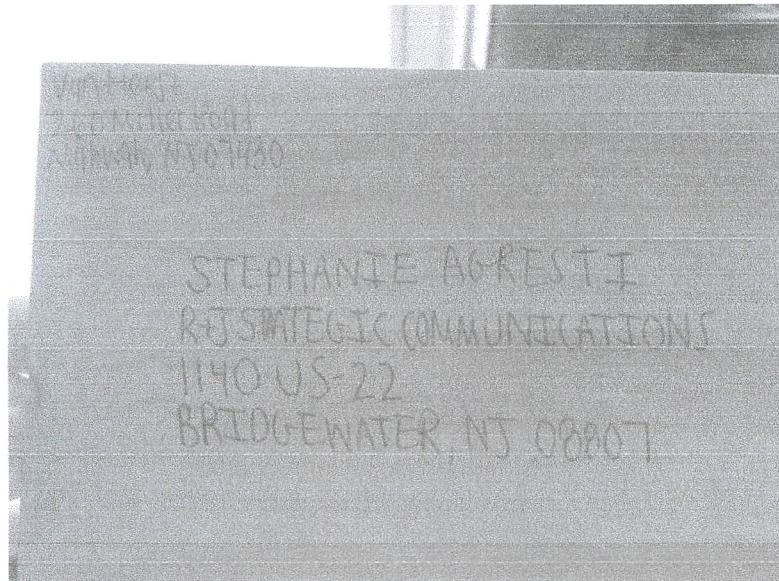 NJ 07430
STEPHANIE AGRESTI
R+J STRATEGIC COMMUNICATIONS
1140 US-22
BRIDGEWATER, NJ 08807